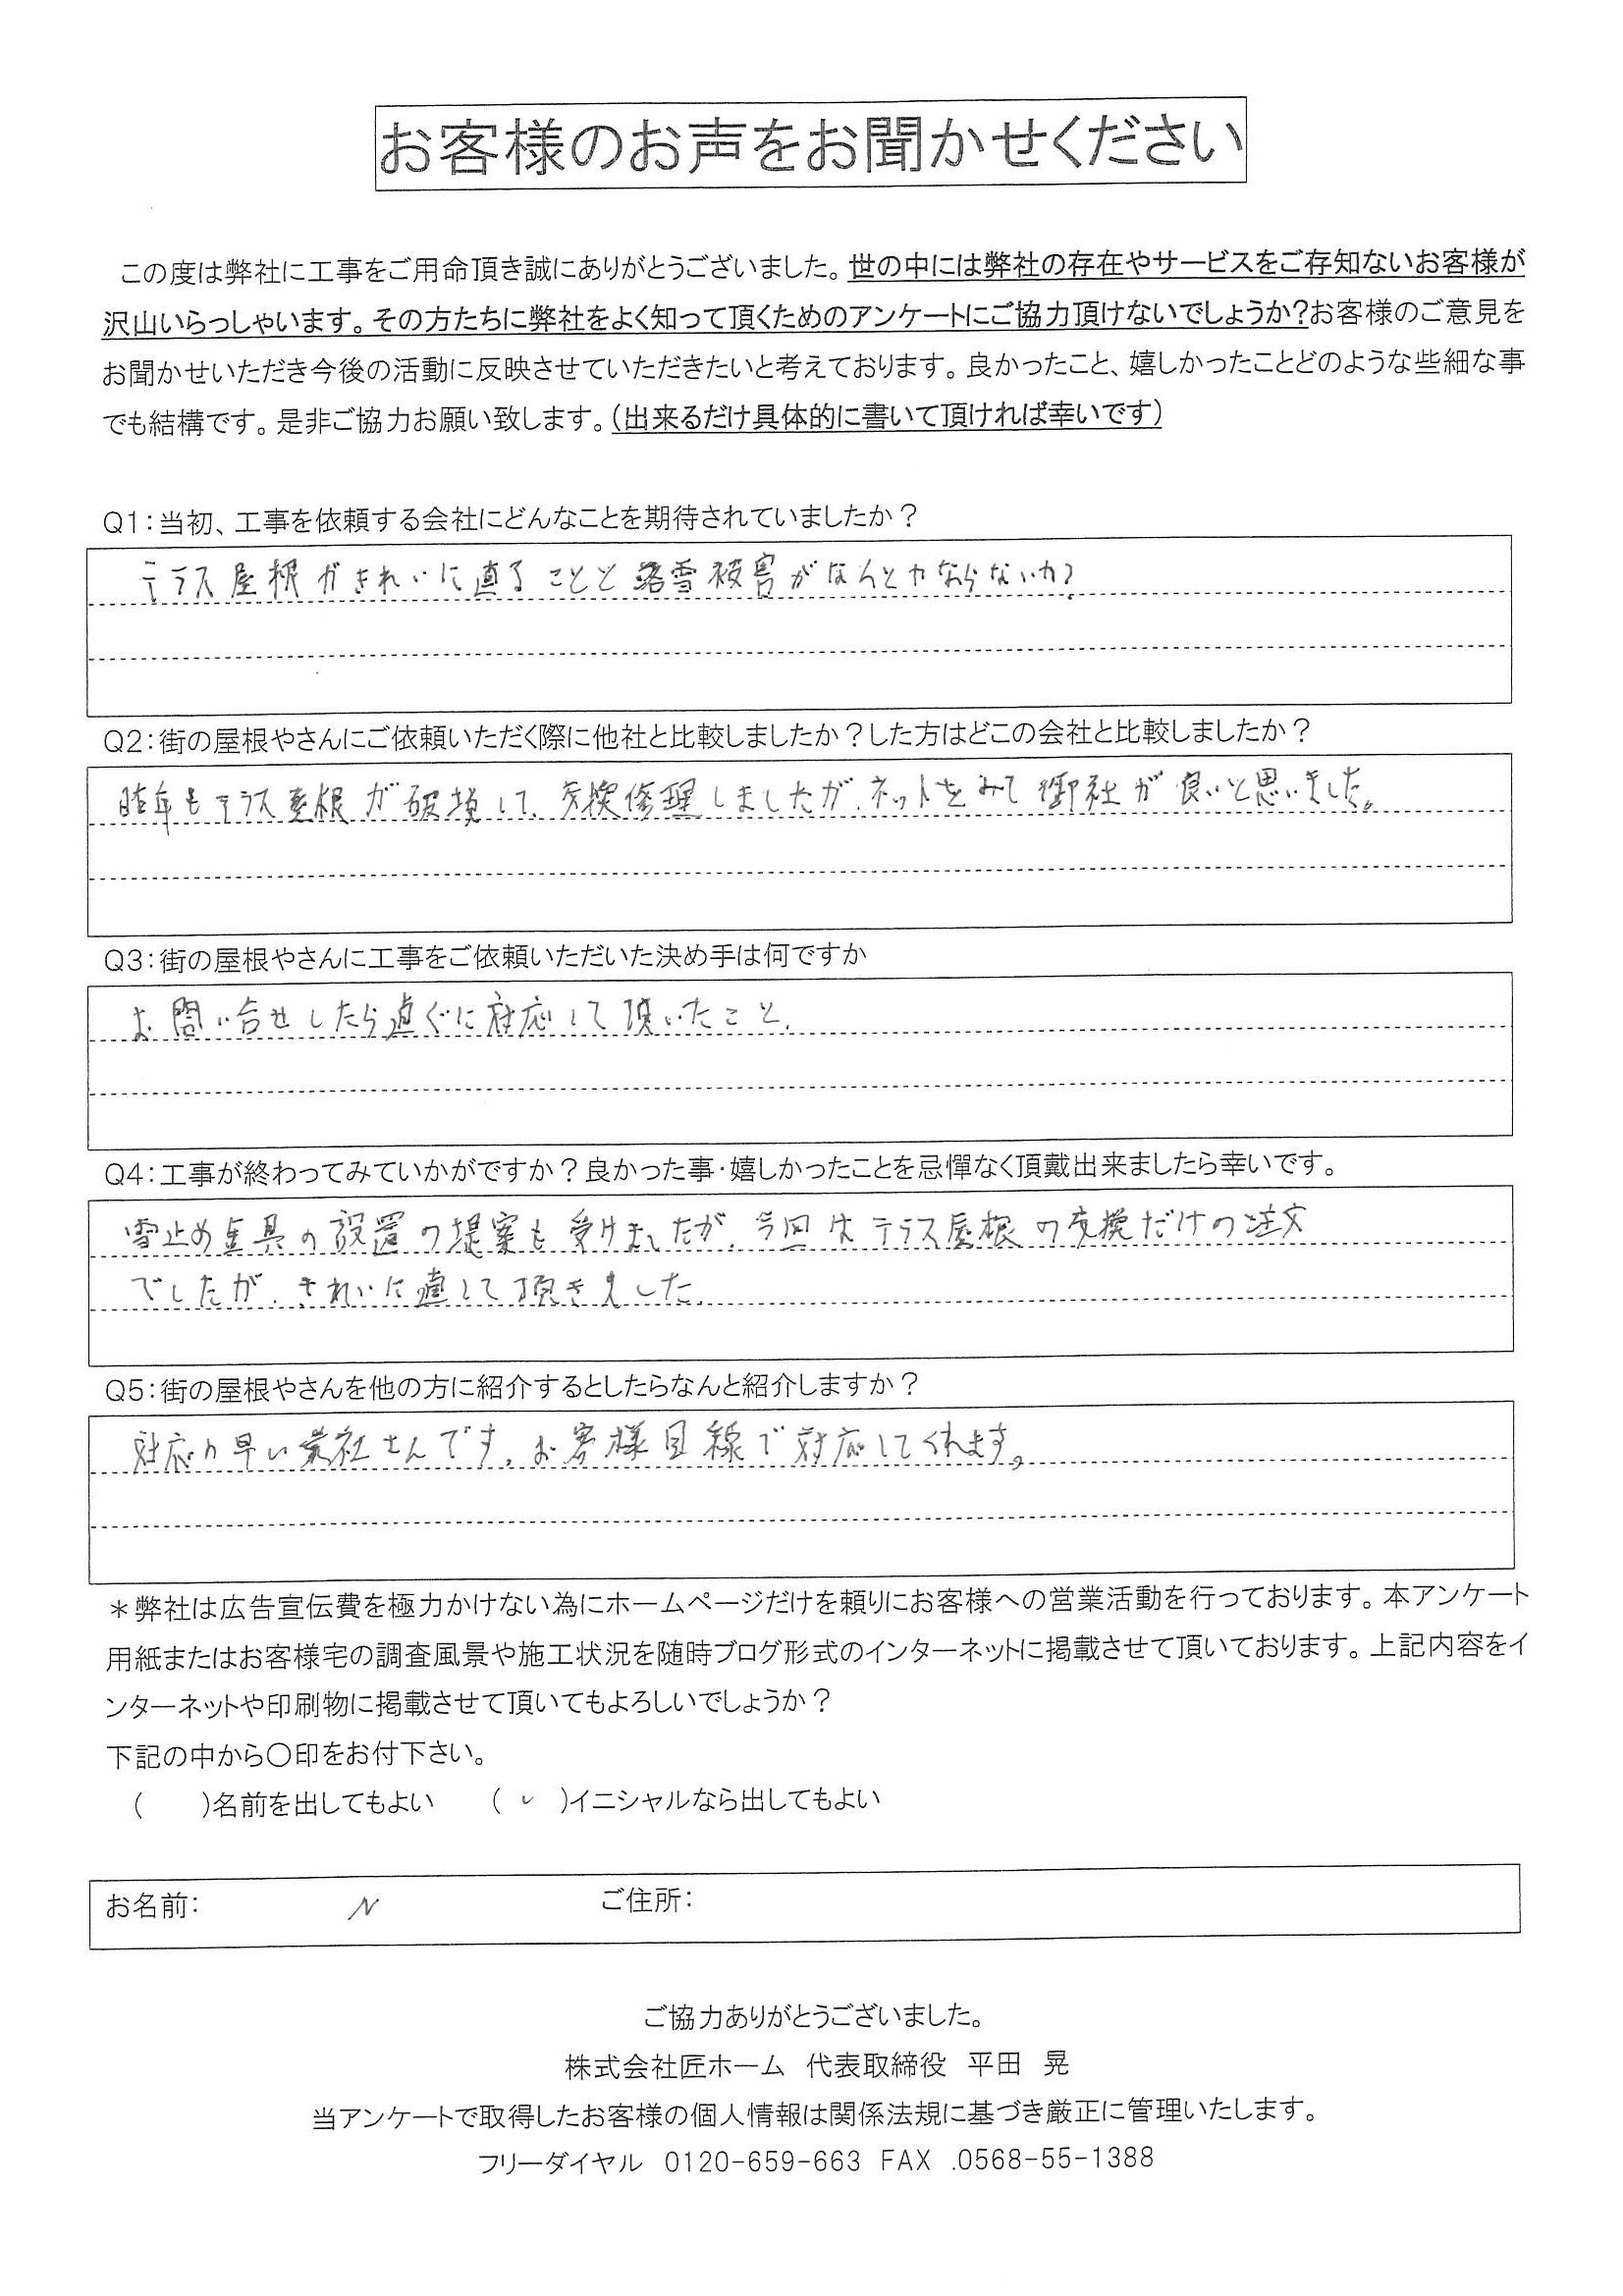 お客様のお声をお聞かせください
この度は弊社に工事をご用命頂き誠にありがとうございました。世の中には弊社の存在やサービスをご存知ないお客様が
沢山いらっしゃいます。その方たちに弊社をよく知って頂くためのアンケートにご協力頂けないでしょうか?お客様のご意見を
お聞かせいただき今後の活動に反映させていただきたいと考えております。良かったこと、嬉しかったことどのような些細な事
でも結構です。是非ご協力お願い致します。(出来るだけ具体的に書いて頂ければ幸いです)
Q1:当初、工事を依頼する会社にどんなことを期待されていましたか?
テラス屋根がきれいに直ることと落雪被害がなんとかならないか?
Q2:街の屋根やさんにご依頼いただく際に他社と比較しましたか?した方はどこの会社と比較しましたか?
昨年もテラス屋根が破壊して、交換修理しましたが、ネットをみて御社が良いと思いました。
Q3:街の屋根やさんに工事をご依頼いただいた決め手は何ですか
お問い合せしたら直ぐに対応して頂いたこと、
Q4:工事が終わってみていかがですか?良かった事・嬉しかったことを忌憚なく頂戴出来ましたら幸いです。
雪止め金具の設置の提案も受けましたが、今回はテラス屋根の交換だけのご注文
でしたが、きれいに直して頂きました。
Q5:街の屋根やさんを他の方に紹介するとしたらなんと紹介しますか?
対応の早い業社さんです。お客様目線で対応してくれます。
*弊社は広告宣伝費を極力かけない為にホームページだけを頼りにお客様への営業活動を行っております。本アンケート
用紙またはお客様宅の調査風景や施工状況を随時ブログ形式のインターネットに掲載させて頂いております。上記内容をイ
ンターネットや印刷物に掲載させて頂いてもよろしいでしょうか?
下記の中から〇印をお付下さい。
( )名前を出してもよい ( ✓ )イニシャルなら出してもよい
お名前: N ご住所:
ご協力ありがとうございました。
株式会社匠ホーム 代表取締役 平田 晃
当アンケートで取得したお客様の個人情報は関係法規に基づき厳正に管理いたします。
フリーダイヤル 0120-659-663 FAX .0568-55-1388